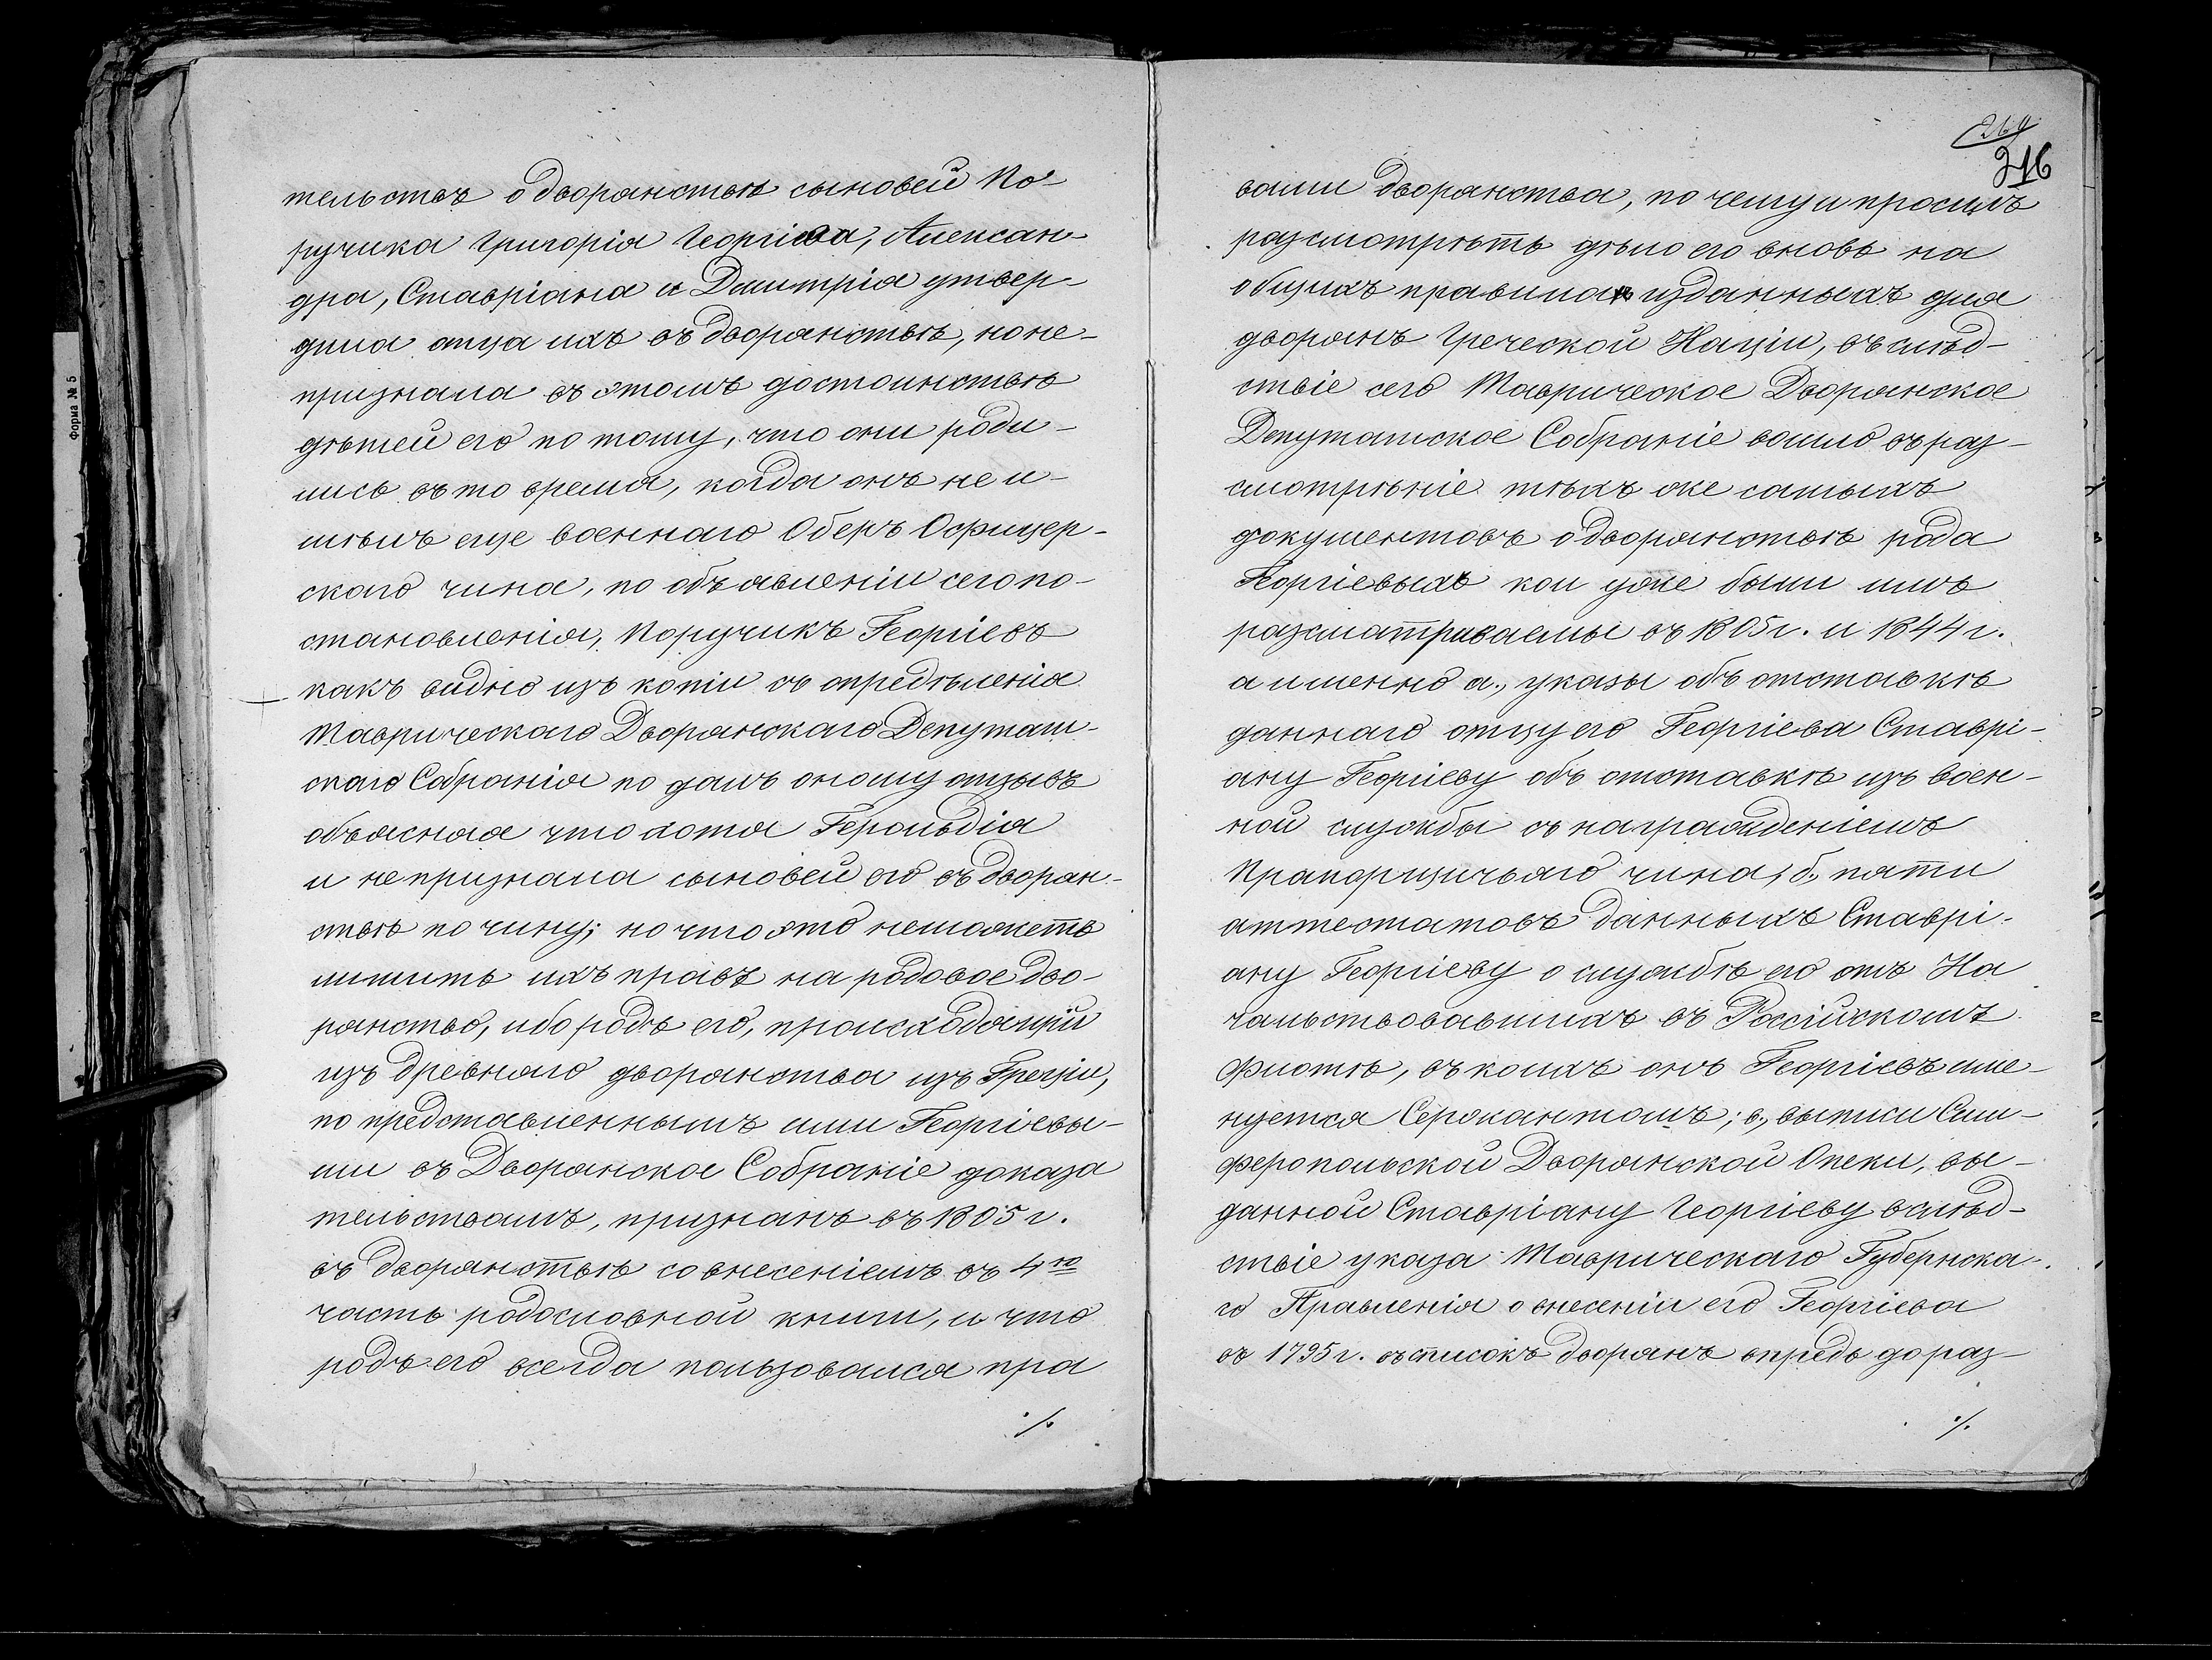 тельствъ о дворянствѣ сыновей По-
ручика Григорія Георгіева, Алексан-
дра, Ставріана и Димитрія утвер-
дила отца ихъ въ дворянствѣ, но не-
признала въ этомъ достоинствѣ
дѣтей его по тому, что они роди-
лись въ то время, когда онъ не и-
мѣлъ еще военнаго Оберъ Офицер-
скаго чина, по объявленіи сего по-
становленія, Поручикъ Георгіевъ
какъ видно изъ копіи съ опредѣленія
Таврическаго Дворянскаго Депутат-
скаго Собранія по далъ оному отзывъ
объясняя что хотя Герольдія
и не признала сыновей его въ дворян-
ствѣ по чину; но что это неможетъ
лишить ихъ правъ на родовое дво-
рянство, ибо родъ его, происходящій
изъ древняго дворянства изъ Греціи,
по представленнымъ ими Георгіевы-
ми въ Дворянское Собраніе доказа
тельствамъ, признанъ въ 1805 г.
въ дворянствѣ со внесеніемъ въ 4ю
часть родословной книги, и что
родъ его всегда пользовался пра
·/.
Форма № 5
264
216
вами дворянства, по чему и проситъ
разсмотрѣть дѣло его вновь на
общихъ правилахъ изданныхъ для
дворянъ Греческой Націи, въ слѣд-
ствіе сего Таврическое Дворянское
Депутатское Собраніе вошло въ раз-
смотрѣніе тѣхъ же самыхъ
документовъ о дворянствѣ рода
Георгіевыхъ кои уже были имъ
разсматриваемы въ 1805 г. и 1844 г.
а именно а., указы объ отставкѣ
даннаго отцу его Георгіева Ставрі-
ану Георгіеву объ отставкѣ изъ воен-
ной службы съ награжденіемъ
Прапорщичьяго чина, б., пяти
аттестатовъ данныхъ Ставрі-
ану Георгіеву о службѣ его отъ На
чальствовавшихъ въ Россійскомъ
флотѣ, въ коихъ онъ Георгіевъ име-
нуется Сержантомъ; в., выписи Сим-
феропольской Дворянской Опеки, вы-
данной Ставріану Георгіеву вслѣд-
ствіе указа Таврическаго Губернска-
го Правленія о внесеніи его Георгіева
въ 1795 г. въ списокъ дворянъ впредь до раз-
·/.